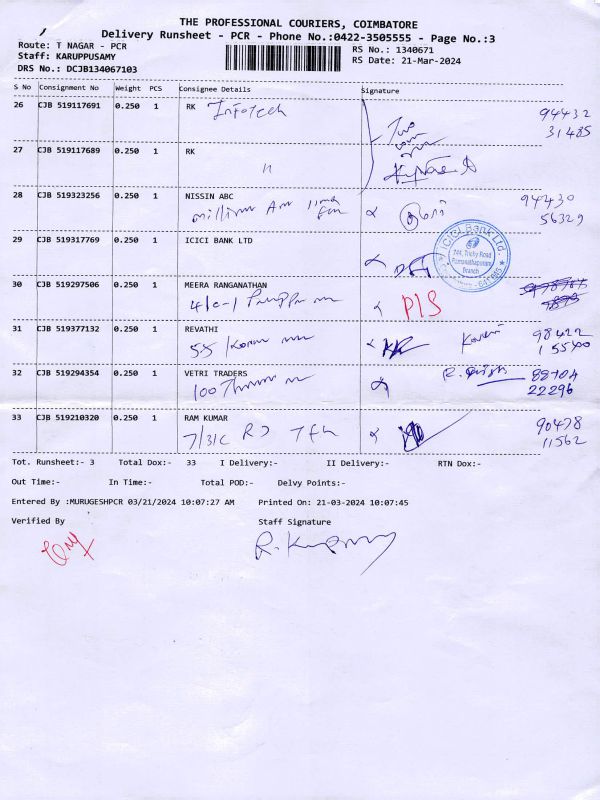 THE PROFESSIONAL COURIERS, COIMBATORE
Delivery Runsheet - PCR - Phone No.:0422-3505555 - Page No.:3
Route: T NAGAR - PCR
Staff: KARUPPUSAMY
DRS No.: DCJB134067103
RS No.: 1340671
RS Date: 21-Mar-2024
S No Consignment No Weight PCS Consignee Details Signature
26 CJB 519117691 0.250 1 RK Infotech
94432
31485
27 CJB 519117689 0.250 1 RK
"
28 CJB 519323256 0.250 1 NISSIN ABC
94430
56329
29 CJB 519317769 0.250 1 ICICI BANK LTD
ICICI Bank Ltd.
744, Trichy Road
Ramanathapuram
Branch
30 CJB 519297506 0.250 1 MEERA RANGANATHAN
P/S
31 CJB 519377132 0.250 1 REVATHI
55
98422
15540
32 CJB 519294354 0.250 1 VETRI TRADERS
100
88704
22296
33 CJB 519210320 0.250 1 RAM KUMAR
7/31C
90478
11562
Tot. Runsheet:- 3 Total Dox:- 33 I Delivery:- II Delivery:- RTN Dox:-
Out Time:- In Time:- Total POD:- Delvy Points:-
Entered By :MURUGESHPCR 03/21/2024 10:07:27 AM Printed On: 21-03-2024 10:07:45
Verified By Staff Signature